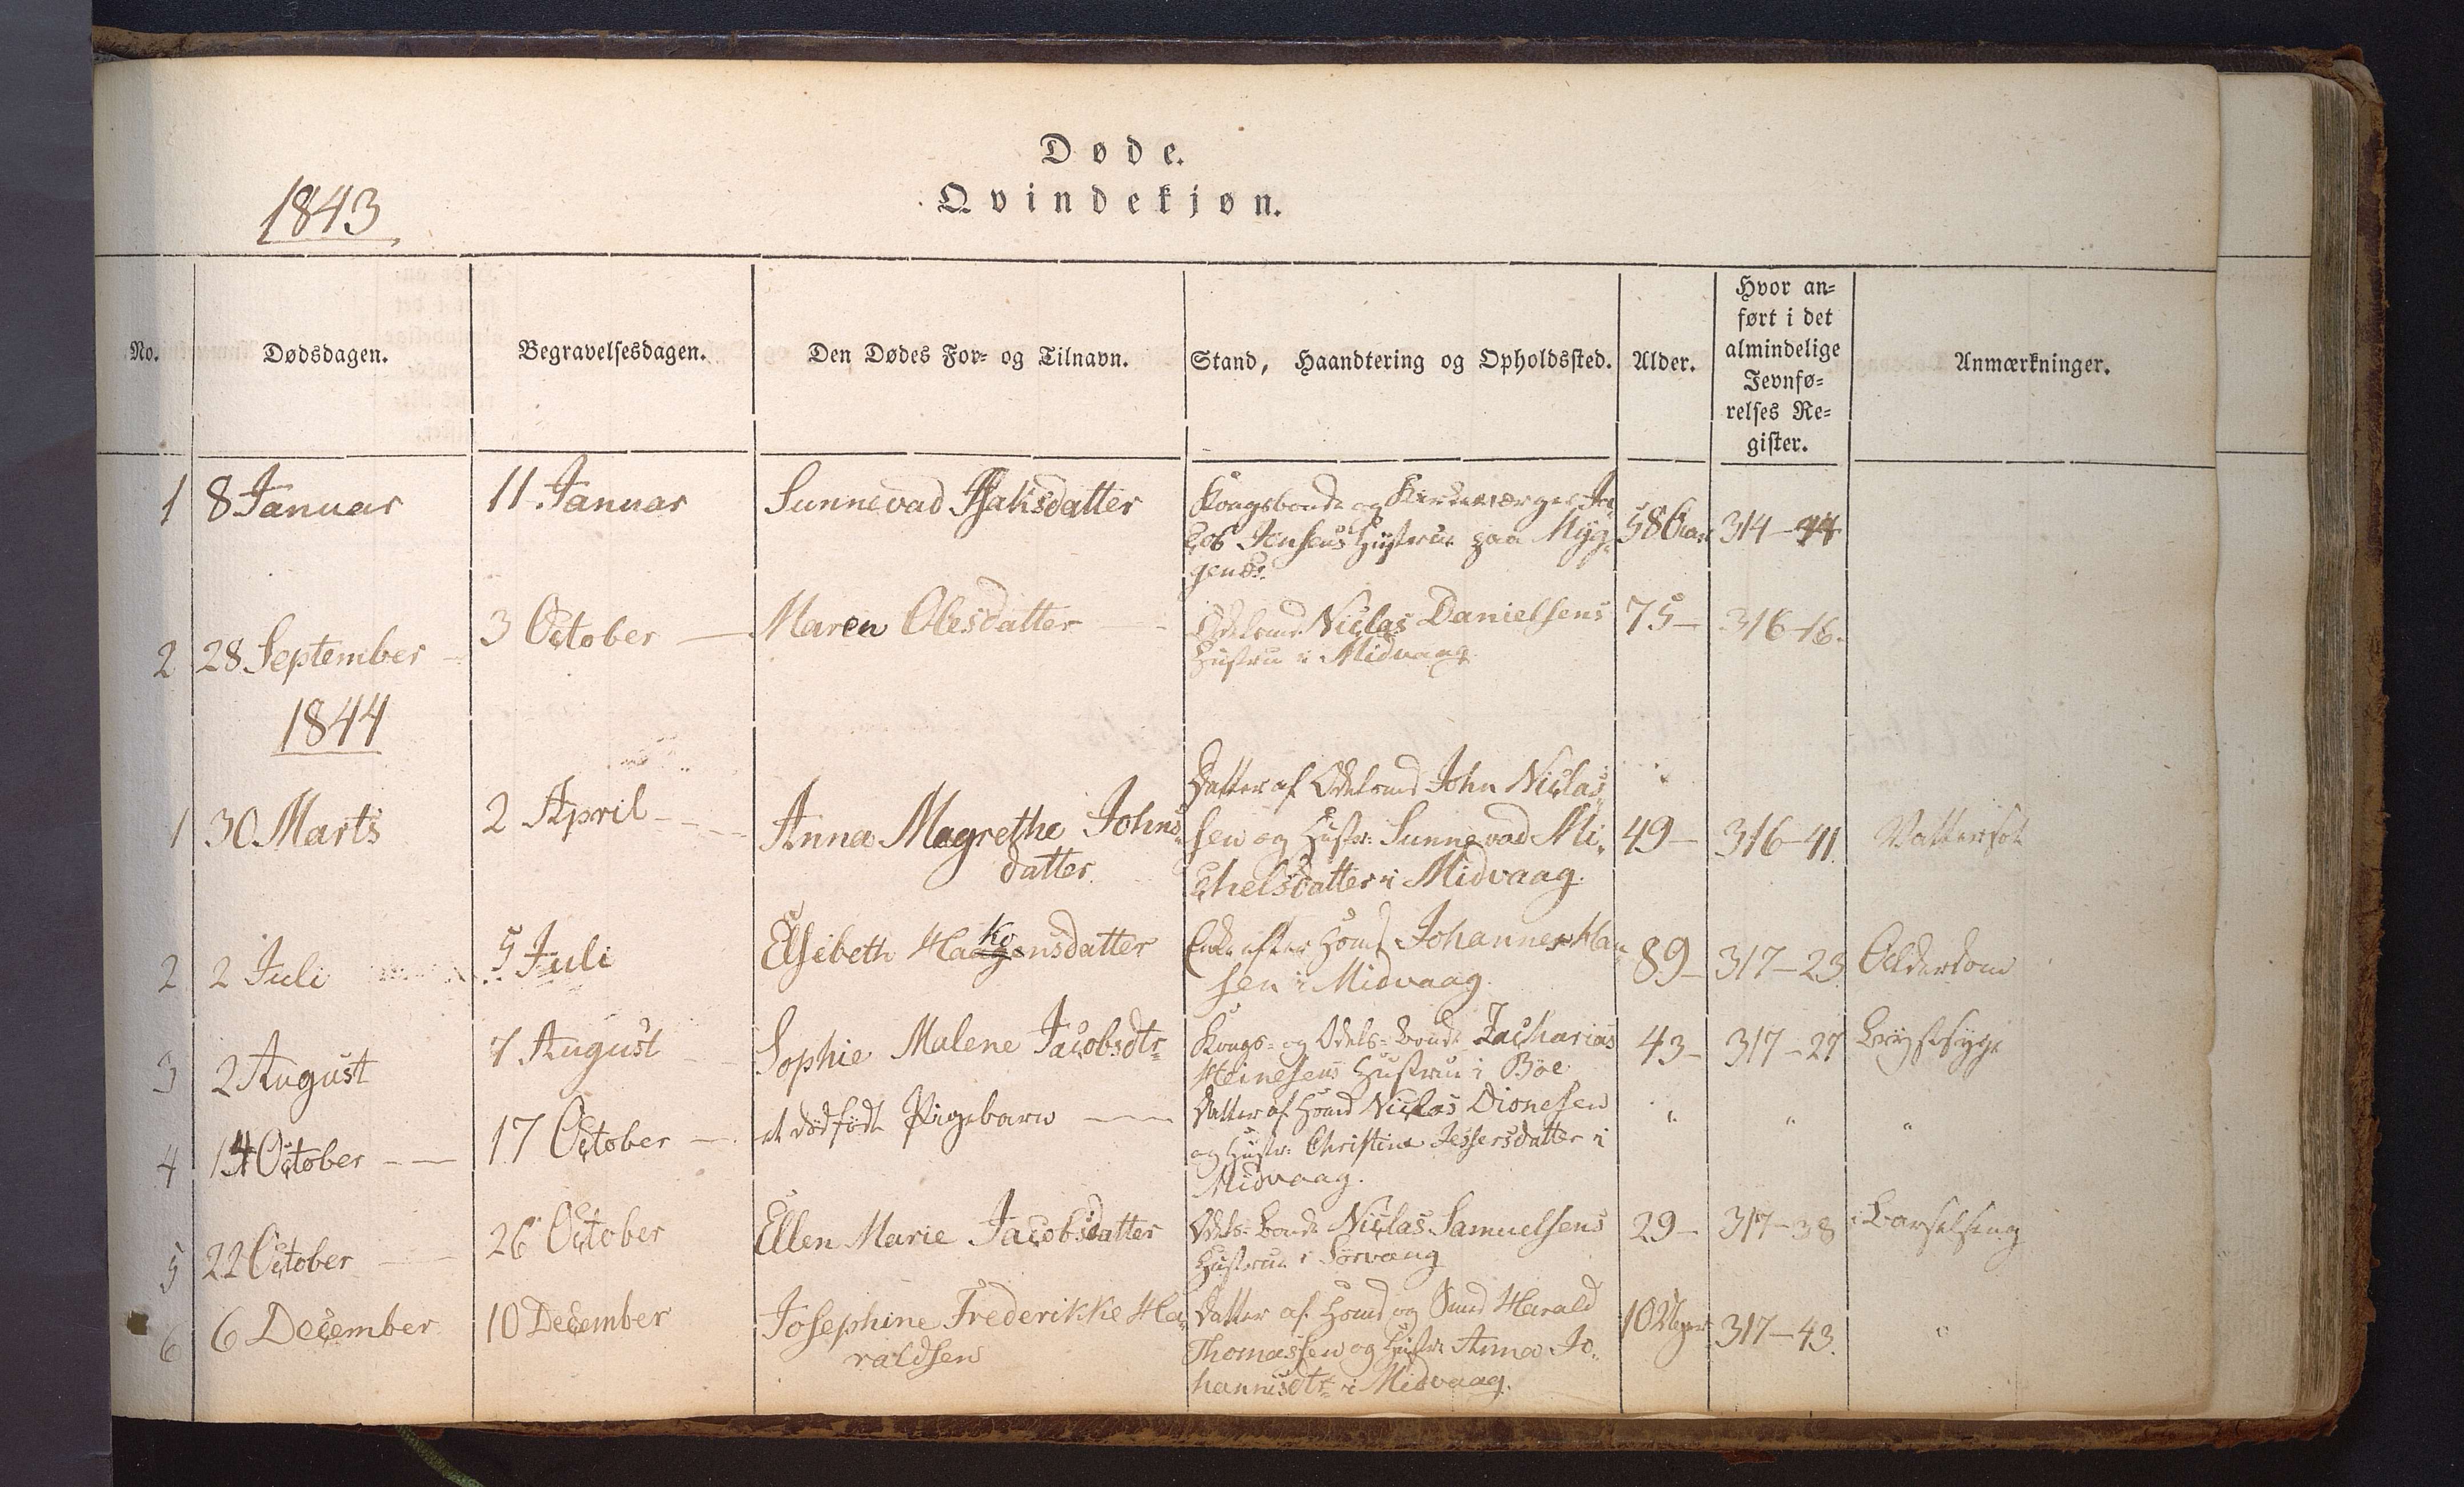 Døde.
Qvindekjøn.
1843
No.
Dødsdagen.
Begravelsesdagen.
Den Dødes For- og Tilnavn.
Stand, Haandtering og Opholdssted.
Alder.
Hvor an-
ført i det
almindelige
Jevnfø-
relses Re-
gister.
Anmærkninger.
1 8 Januar 11. Januar Sunnevad Isaksdatter Kongsbonde og Kirkeværges Ja-
cob Jensens Hustrue paa Myg-
genæs. 58 Aar 314-
2 28 September 3 October Maren Olesdatter Odelsmd. Niclas Danielsens
Hustru i Midvaag. 75 316-16.
1844
1 30 Marts 2 April Anna Magrethe Johns-
datter. Datter af Odelsmd John Niclas-
sen og Hustr: Sunnevad Mi-
chelsdatter i Midvaag. 49 316-41. Vattersot
2 2 Juli 5 Juli Elsebeth Haagensdatter
ko
Enke efter Hsmd Johannes Han-
sen i Midvaag. 89 317-23 Alderdom
3 2 August 7 August Sophie Malene Jacobsdtr Kongs- og Odels-bonde Zacharias
Heinesens Hustrue i Böe. 43 317-27 Brystsyge
4 14 October 17 October et dödfödt Pigebarn Datter af Hsmd Niclas Dionesen
og Hustr: Christine Jessersdatter i
Midvaag. " " "
5 22 October 26 October Ellen Marie Jacobsdatter Odels-bonde Niclas Samuelsens
Hustrue i Sörvaag 29 317-38 i Barselseng
6 6 December 10 December Josephine Frederikke Ha-
raldsen Datter af Hsmd og Harald
Thomassen og Hustr: Anna Jo-
hannisdtr i Midvaag. 10 Uger 317-43. "